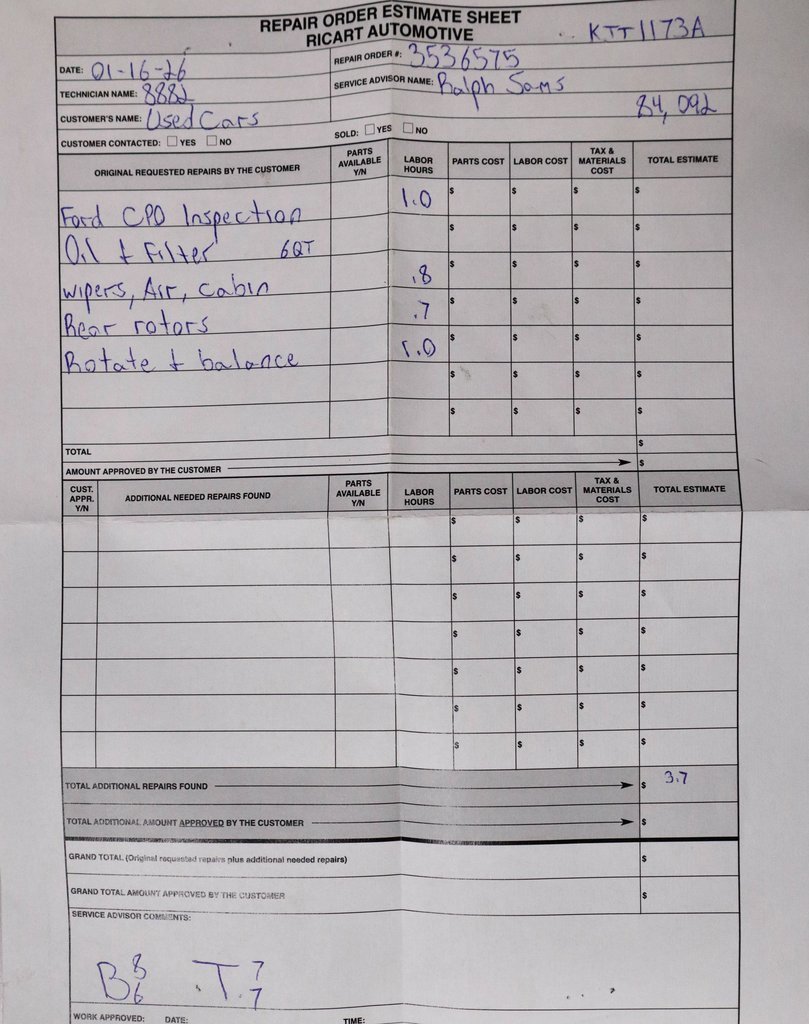 REPAIR ORDER ESTIMATE SHEET
RICART AUTOMOTIVE
KTT1173A
DATE: 01-16-26
REPAIR ORDER #: 3536575
TECHNICIAN NAME: 8882
SERVICE ADVISOR NAME: Ralph Sams
84,092
CUSTOMER'S NAME: Used Cars
CUSTOMER CONTACTED: ☐ YES ☐ NO
SOLD: ☐ YES ☐ NO
ORIGINAL REQUESTED REPAIRS BY THE CUSTOMER PARTS AVAILABLE Y/N LABOR HOURS PARTS COST LABOR COST TAX & MATERIALS COST TOTAL ESTIMATE
Ford CPO Inspection 1.0 $ $ $ $
Oil + Filter 6QT $ $ $ $
wipers, Air, cabin .8 $ $ $ $
Rear rotors .7 $ $ $ $
Rotate + balance 1.0 $ $ $ $
$ $ $ $
$ $ $ $
TOTAL $
AMOUNT APPROVED BY THE CUSTOMER $
CUST. APPR. Y/N ADDITIONAL NEEDED REPAIRS FOUND PARTS AVAILABLE Y/N LABOR HOURS PARTS COST LABOR COST TAX & MATERIALS COST TOTAL ESTIMATE
$ $ $ $
$ $ $ $
$ $ $ $
$ $ $ $
$ $ $ $
$ $ $ $
$ $ $ $
TOTAL ADDITIONAL REPAIRS FOUND $ 3.7
TOTAL ADDITIONAL AMOUNT APPROVED BY THE CUSTOMER $
GRAND TOTAL (Original requested repairs plus additional needed repairs) $
GRAND TOTAL AMOUNT APPROVED BY THE CUSTOMER $
SERVICE ADVISOR COMMENTS:
B 8 6 T 7 7
WORK APPROVED: DATE: TIME: